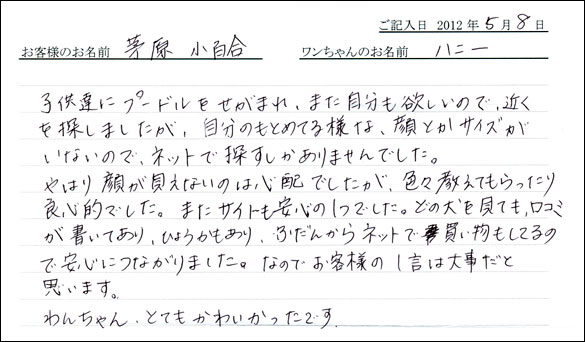 ご記入日 2012年5月8日
お客様のお名前 茅原 小百合 ワンちゃんのお名前 ハニー
子供達にプードルをせがまれ、また自分も欲しいので、近く
を探しましたが、自分のもとめてる様な、顔とかサイズが
いないので、ネットで探すしかありませんでした。
やはり顔が見えないのは心配でしたが、色々教えてもらったり
良心的でした。またサイトも安心の1つでした。どの犬を見ても、口コミ
が書いてあり、ひょうかもあり、ふだんからネットで買い物もしてるの
で安心につながりました。なのでお客様の1言は大事だと
思います。
わんちゃん、とてもかわいかったです